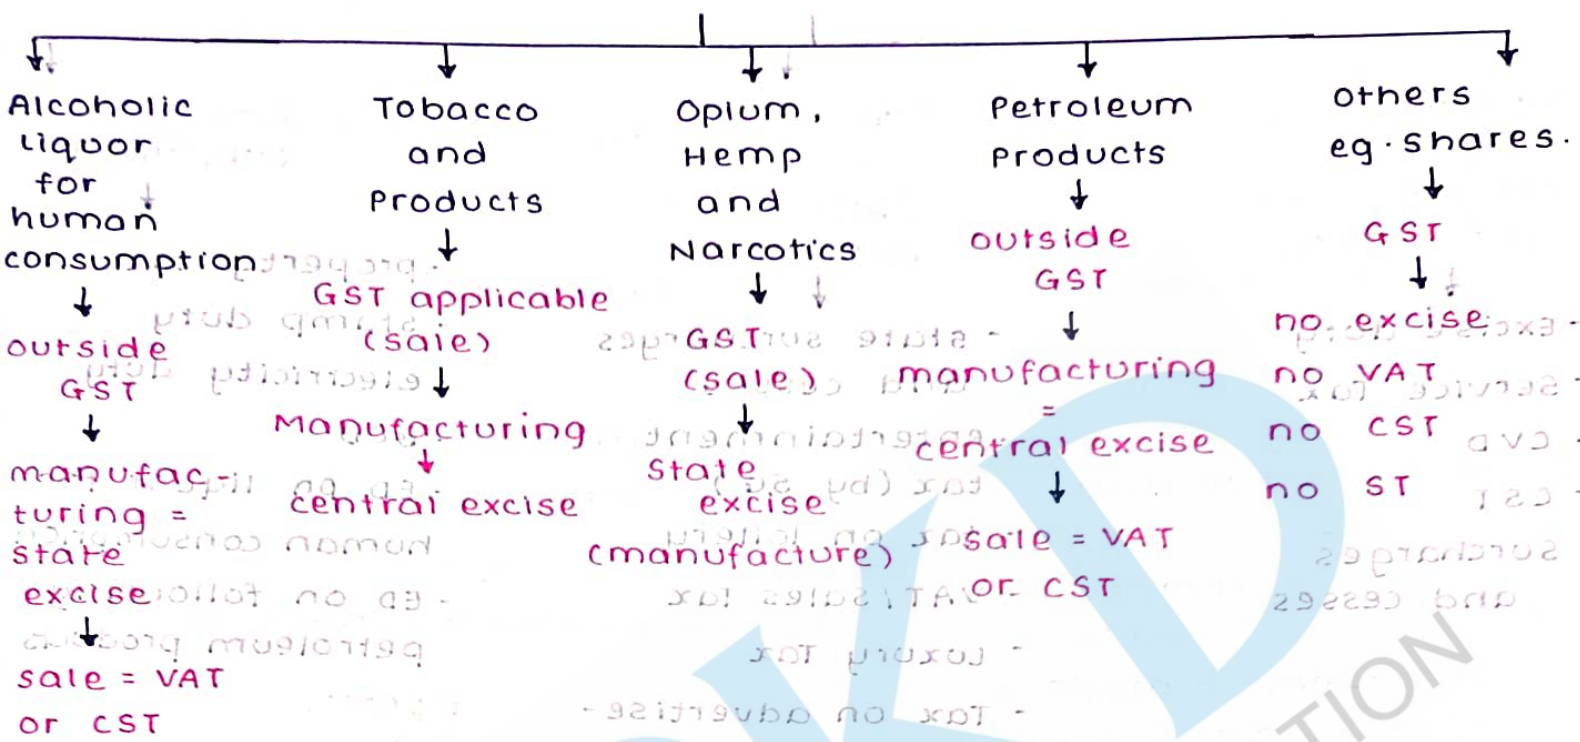 Alcoholic
Liquor
for
human
consumption
outside
GST
manufac-
turing =
state
excise
sale = VAT
or CST
Tobacco
and
Products
GST applicable
(sale)
Manufacturing
central excise
Opium,
Hemp
and
Narcotics
GST
(sale)
State
excise
(manufacture)
Petroleum
Products
outside
GST
manufacturing
=
central excise
sale = VAT
or CST
others
eg. shares.
GST
no excise
no VAT
no CST
no ST
KD
TION